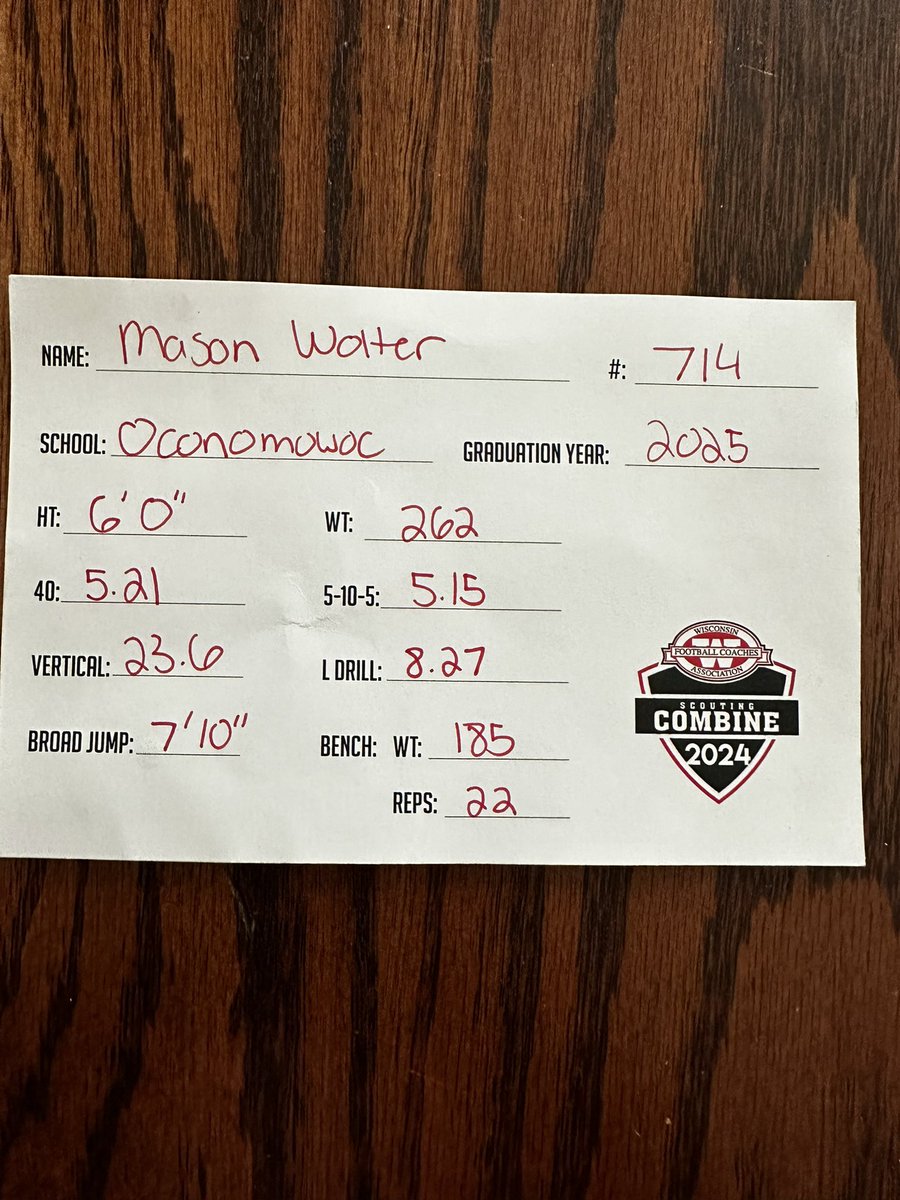 NAME: Mason Wolter #: 714
SCHOOL: Oconomowoc GRADUATION YEAR: 2025
HT: 6'0" WT: 262
40: 5.21 5-10-5: 5.15
VERTICAL: 23.6 L DRILL: 8.27
BROAD JUMP: 7'10" BENCH: WT: 185
REPS: 22
WISCONSIN
W
FOOTBALL COACHES
ASSOCIATION
SCOUTING
COMBINE
2024